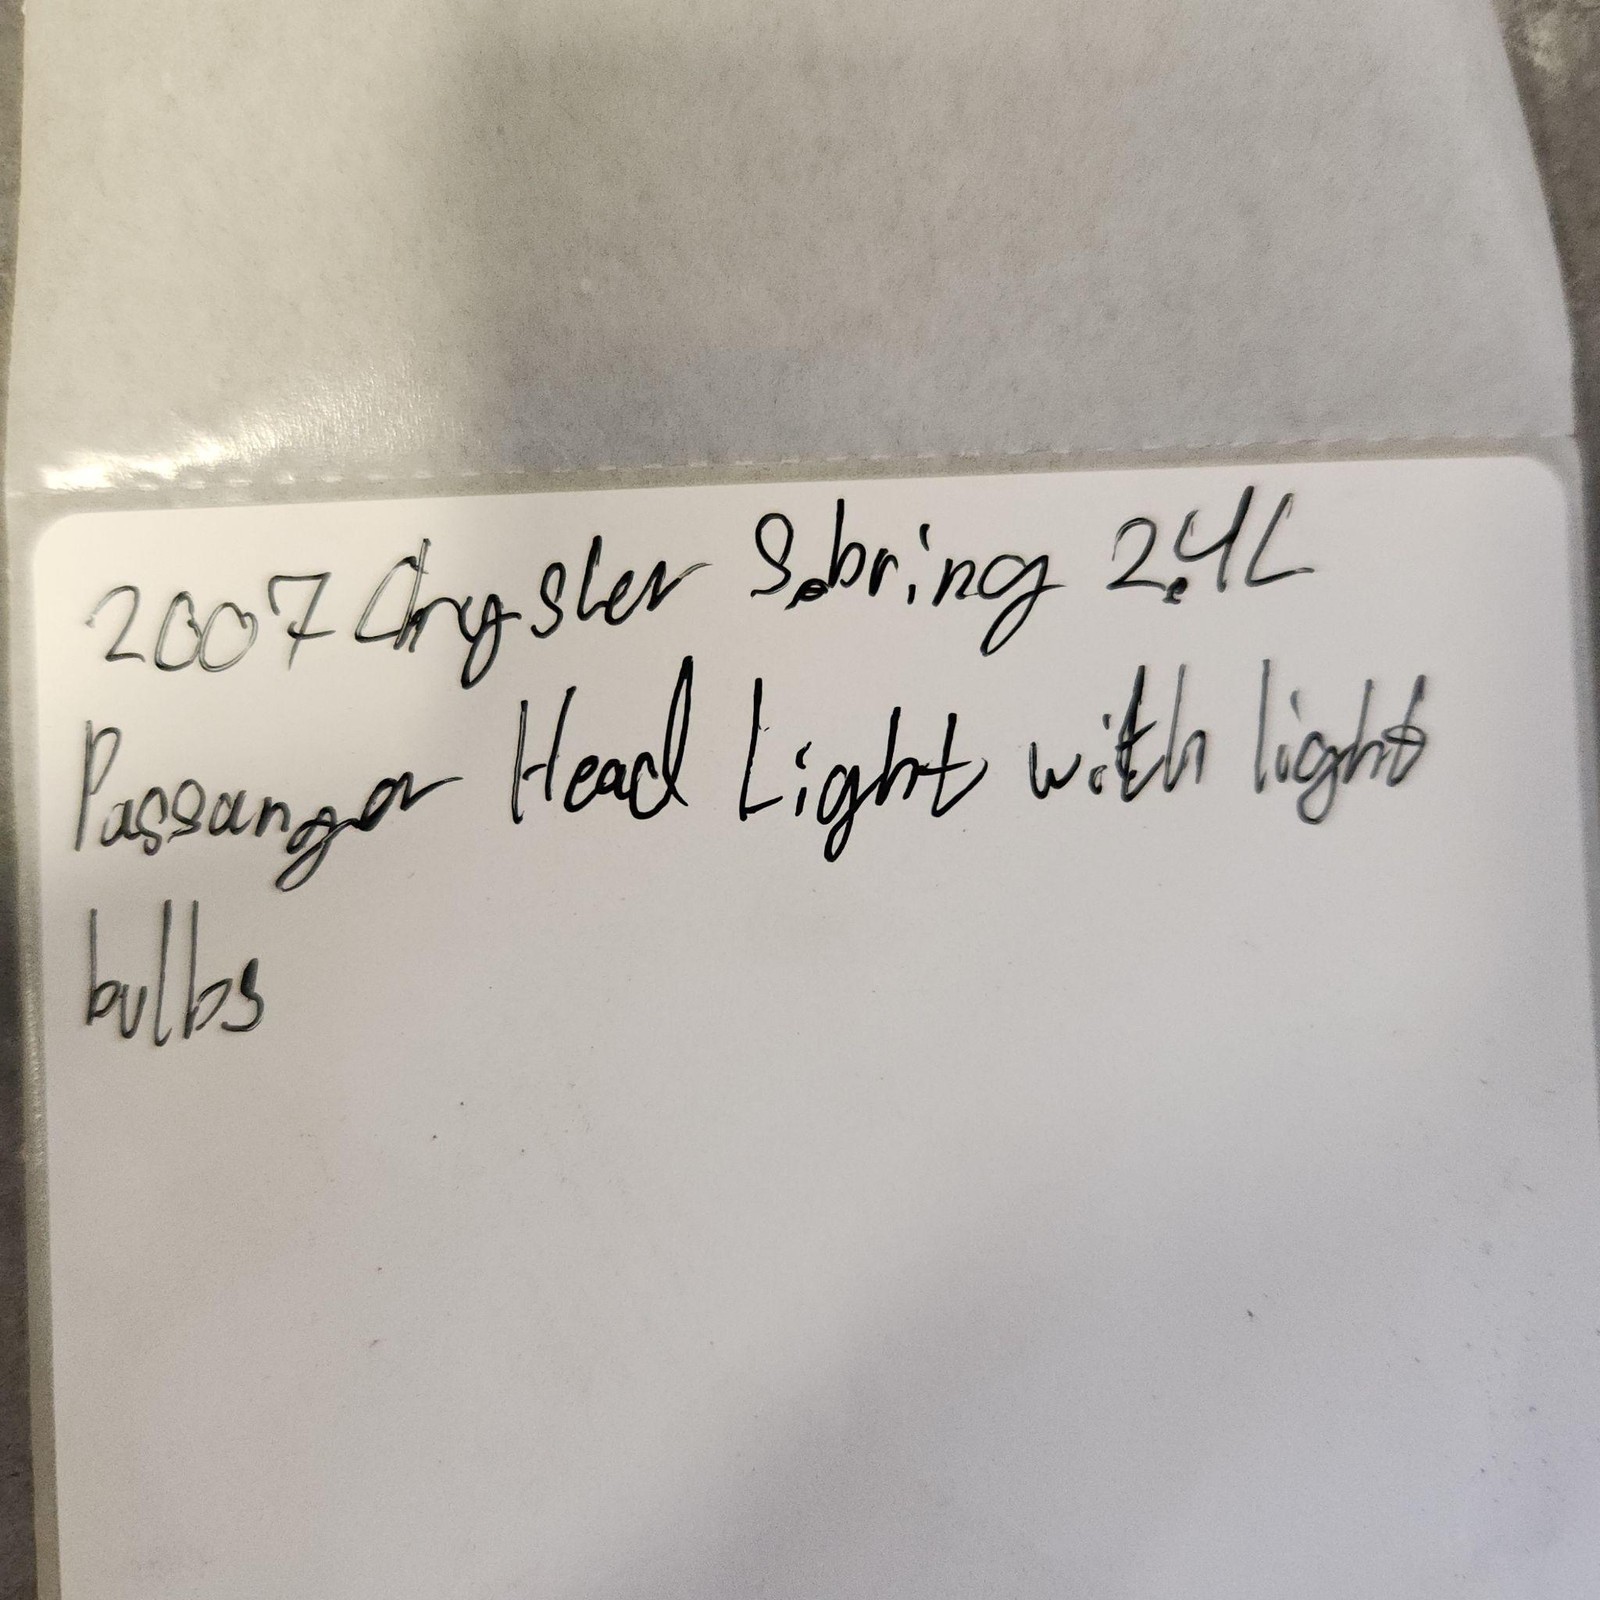 2007 Chrysler Sebring 2.4L
Passanger Head Light with light
bulbs